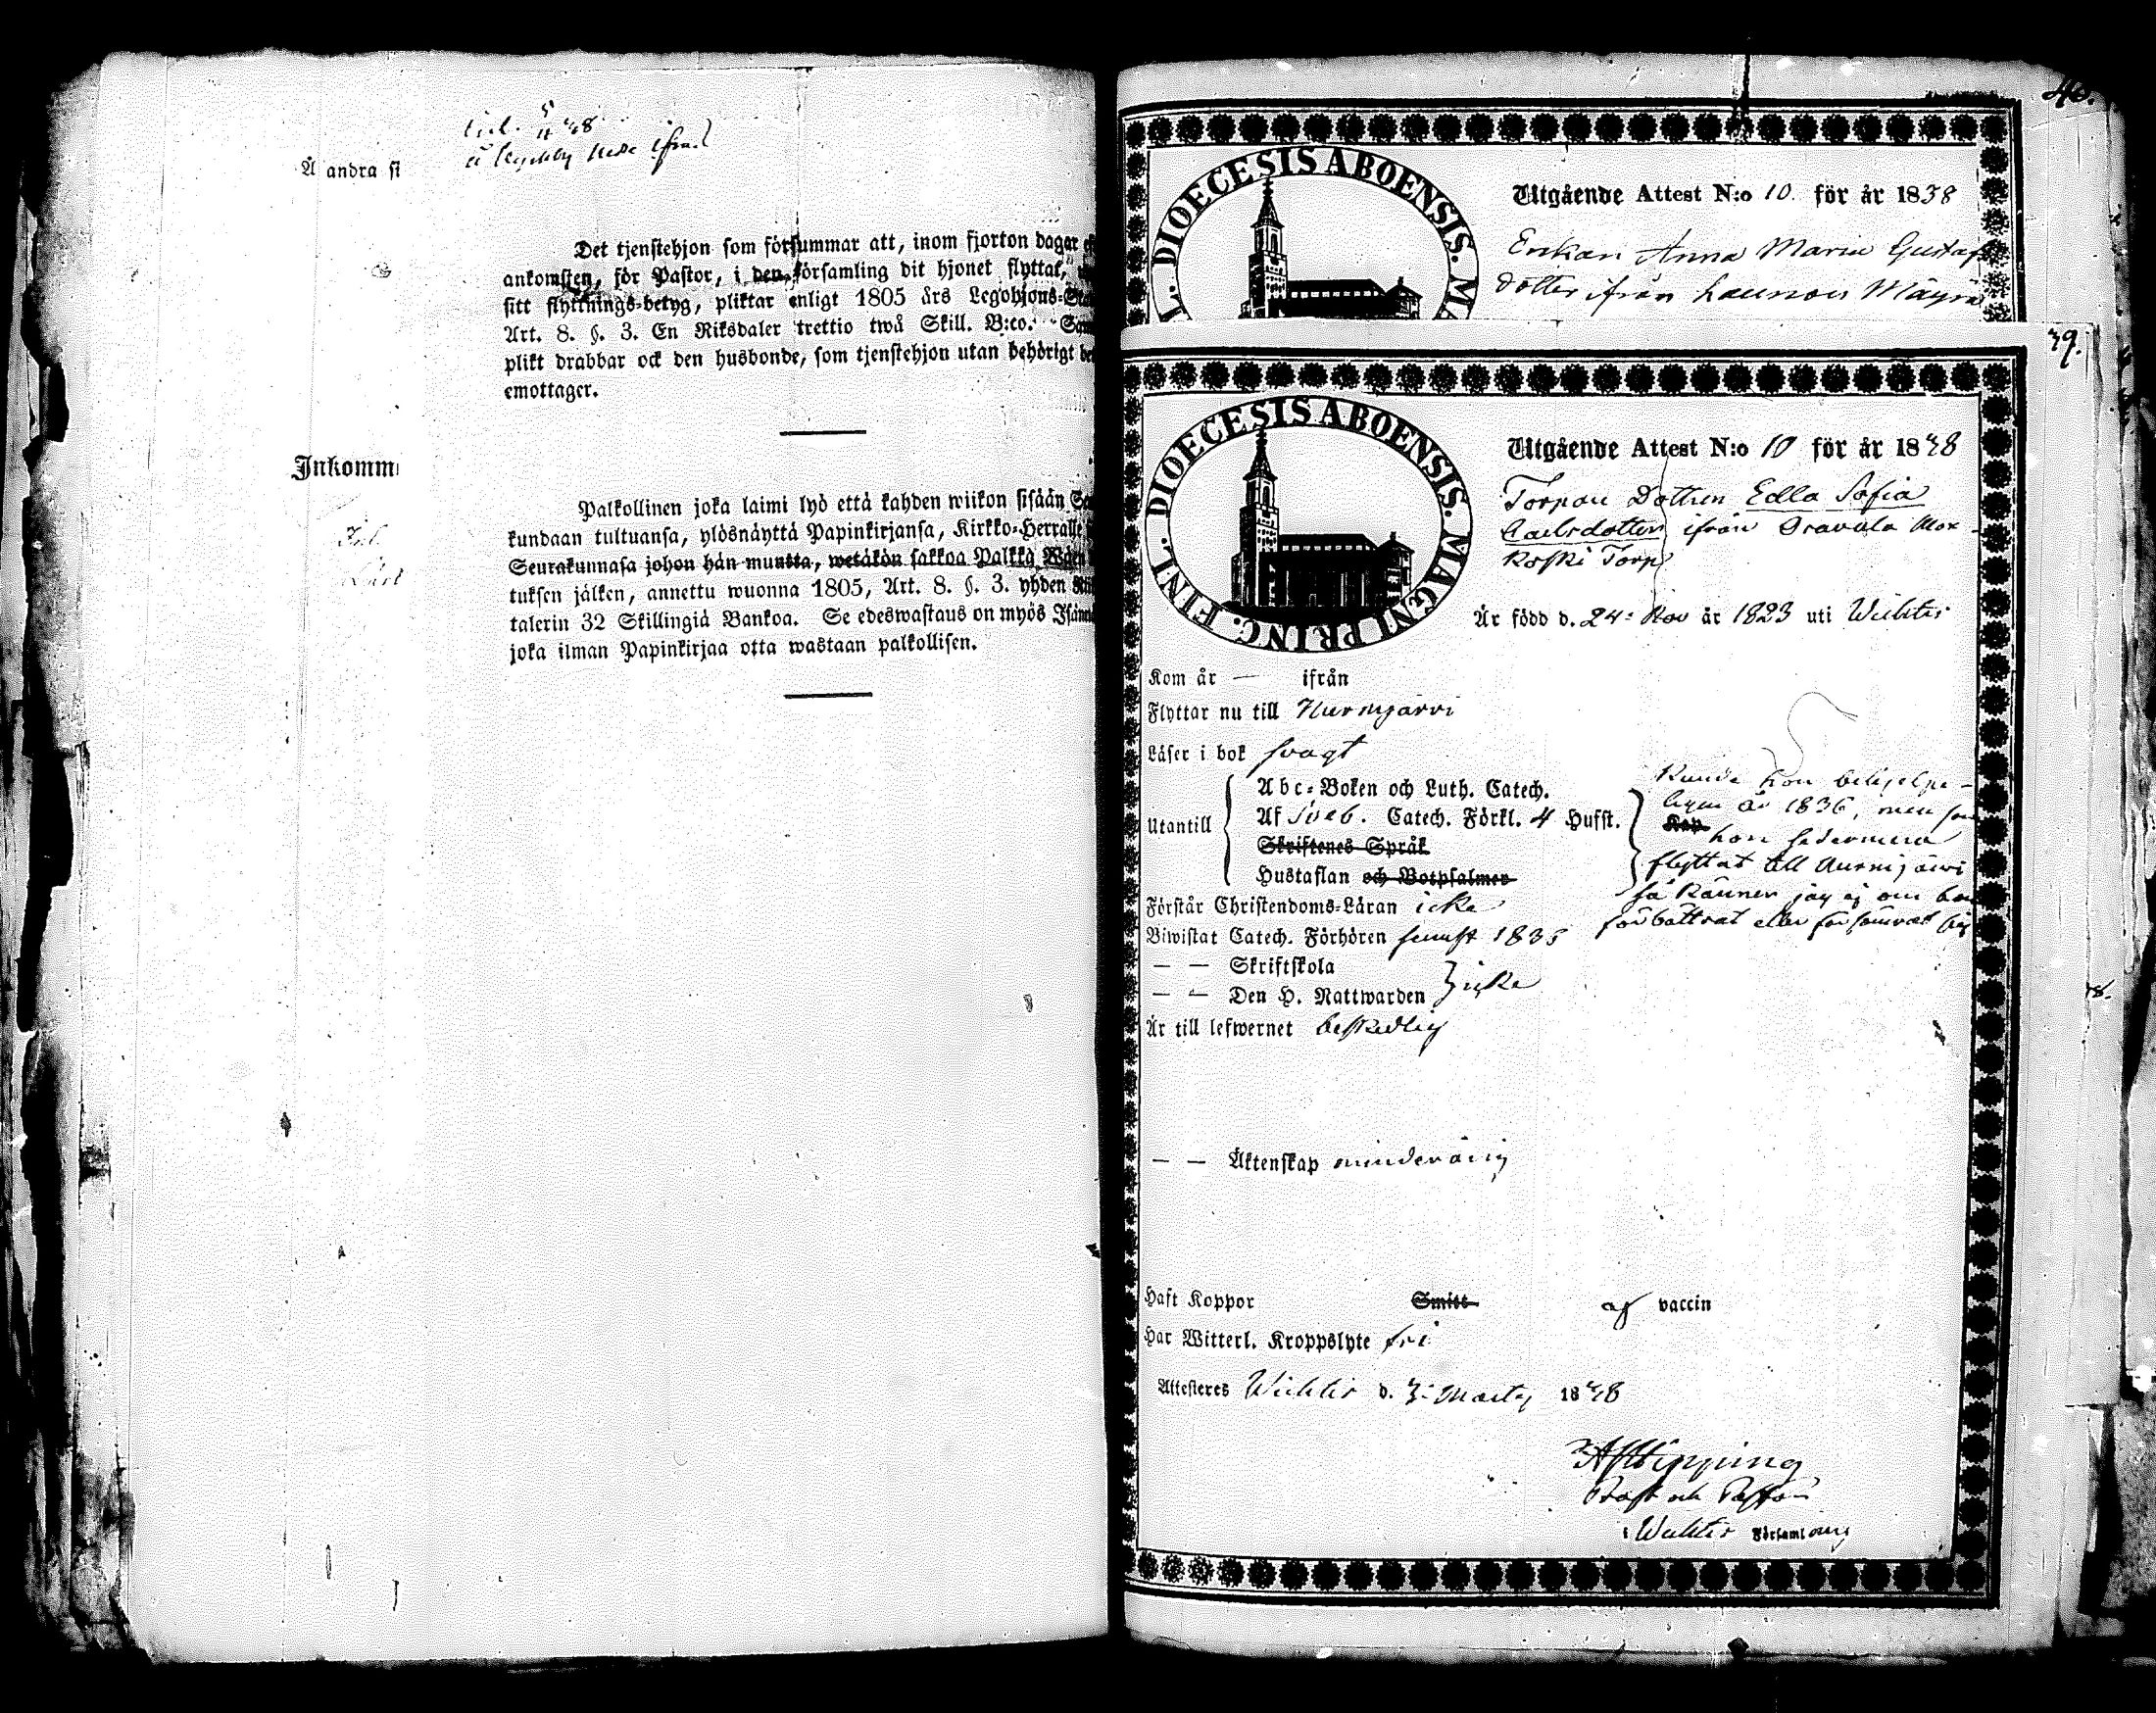 Å andra si
Inkomm
Det tjenstehjon som försummar att, inom fjorton dagar ef
ankomsten, för Pastor, i den församling dit hjonet flyttat,
sitt flyttnings-betyg, pliktar enligt 1805 års Legohjons-Sta
Art. 8. §. 3. En Riksdaler trettio twå Skill. B:co. Sam
plikt drabbar ock den husbonde, som tjenstehjon utan behörigt be
emottager.
Palkollinen joka laimi lyö että kahden wiikon sisään Seu
kundaan tultuansa, ylösnäyttä Papinkirjansa, Kirkko-Herralle
Seurakunnasa johon hän muutta, wetäkön sakkoa Palkka Wäen
tuksen jälken, annettu wuonna 1805, Art. 8. §. 3. yhden Rik
talerin 32 Skillingiä Bankoa. Se edeswastaus on myös Isänn
joka ilman Papinkirjaa otta wastaan palkollisen.
40.
DIOECESIS ABOENSIS. MA
Utgående Attest N:o 10. för år 1838
Enkan Anna Maria Gustafs
dotter ifrån
39.
DIOECESIS ABOENSIS. MAGNI PRINC. FINL.
Utgående Attest N:o 10 för år 1838
Torpare Dottren Edla Sofia
Carlsdotter ifrån Oravala
Koski Torp
Är född d. 24: Nov år 1823 uti Wichtis
Kom år — ifrån
Flyttar nu till Nurmijärvi
Läser i bok svagt
Utantill
Abc-Boken och Luth. Catech.
Af Sveb. Catech. Förkl. 4 Hufst.
Skriftenes Språk
Hustaflan och Botpsalmer
Kunde hon behjelpe-
ligen år 1836, men som
Kap
hon sedermera
flyttat till Nurmijärvi
så känner jag ej om hon
förbättrat eller försämrat sig
Förstår Christendoms-Läran icke
Biwistat Catech. Förhören senast 1835
— — Skriftskola
— — Den H. Nattwarden } icke
Är till lefwernet beskedlig
— — Äktenskap minderårig
Haft Koppor Smitt af vaccin
Har Witterl. Kroppslyte fri
Attesteres Wichtis d. 3: Martij 1838
Prost och Pastor
i Wichtis Församling